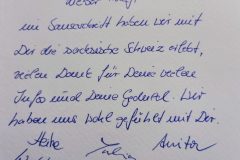 im Sauseschritt haben wir mit
Dir die sächsische Schweiz erlebt,
vielen Dank für Deine vielen
Infos und Deine Geduld. Wir
haben uns wohl gefühlt mit Dir.
Heike Anita